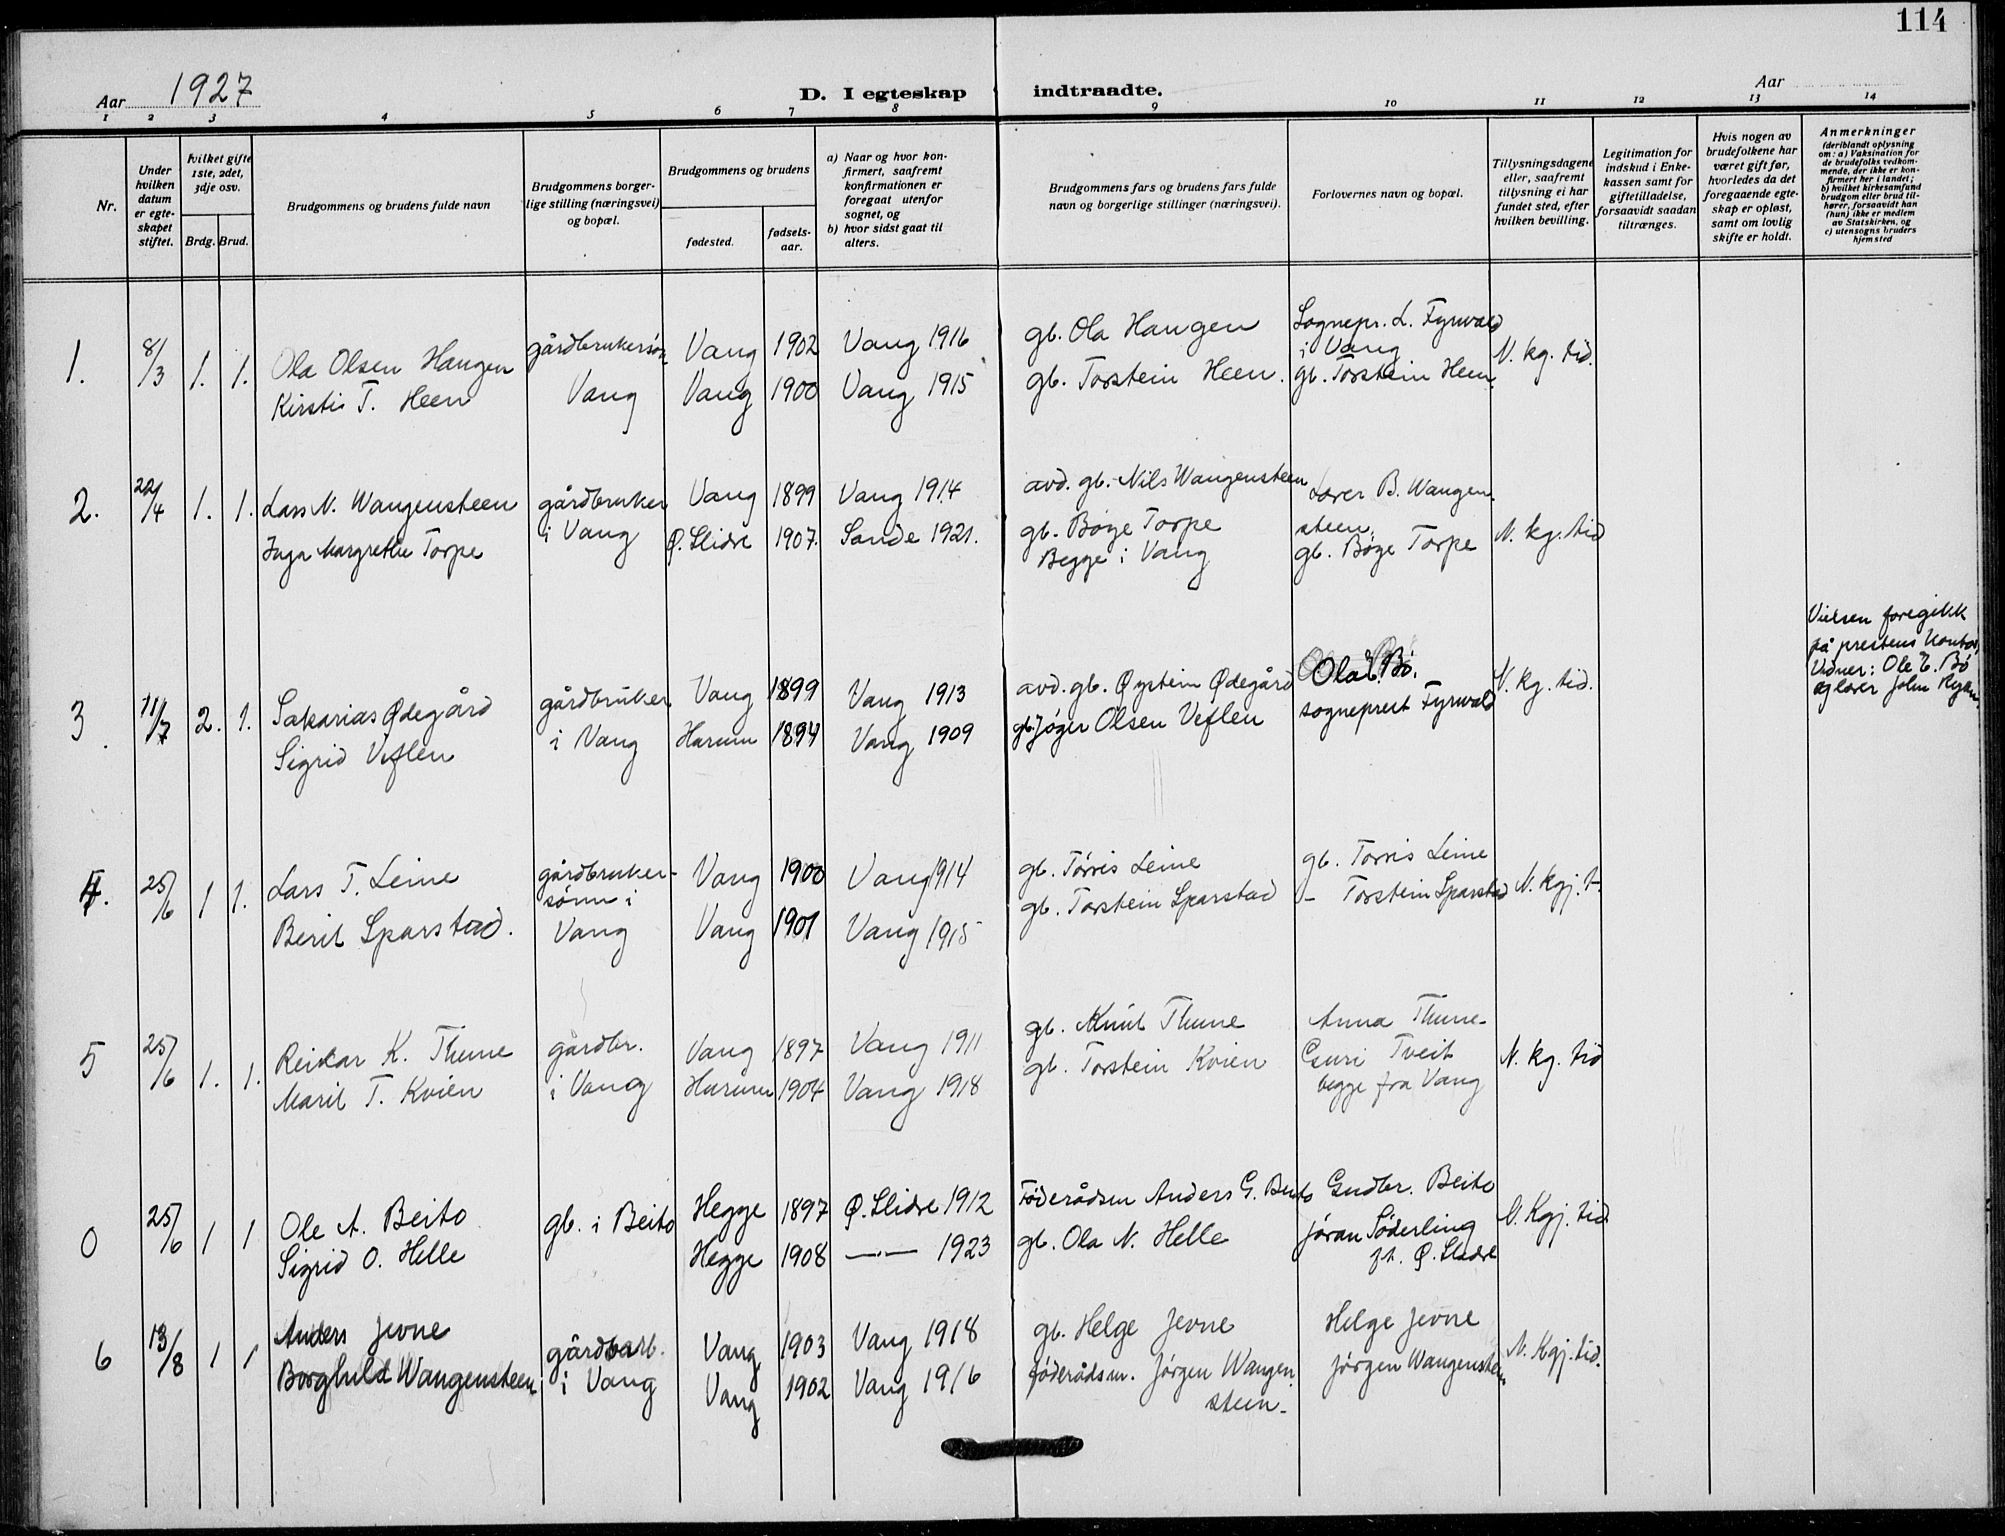 114
Aar 1927
D. I egteskap indtraadte.
Aar
1 2 3 4 5 6 7 8 9 10 11 12 13 14
Nr.
Under hvilken datum er egteskapet stiftet.
hvilket gifte 1ste, 2det, 3dje osv.
Brdg. Brud.
Brudgommens og brudens fulde navn
Brudgommens borgerlige stilling (næringsvei) og bopæl.
Brudgommens og brudens
fødested.
fødselsaar.
a) Naar og hvor konfirmert, saafremt konfirmationen er foregaat utenfor sognet, og
b) hvor sidst gaat til alters.
Brudgommens fars og brudens fars fulde navn og borgerlige stillinger (næringsvei).
Forlovernes navn og bopæl.
Tillysningsdagene eller, saafremt tillysning ei har fundet sted, efter hvilken bevilling.
Legitimation for indskud i Enkekassen samt for giftetilladelse, forsaavidt saadan tiltrænges.
Hvis nogen av brudefolkene har været gift før, hvorledes da det foregaaende egteskap er opløst, samt om lovlig skifte er holdt.
Anmerkninger
(deriblandt oplysning om: a) Vaksination for de brudefolks vedkommende, der ikke er konfirmert her i landet; b) hvilket kirkesamfund brudgom eller brud tilhører, forsaavidt han (hun) ikke er medlem av Statskirken, og c) utensogns bruders hjemsted
1. 8/3 1. 1. Ola Olsen Haugen gårdbrukersøn Vang 1902 Vang 1916 gb. Ola Haugen Sognepr. L. Fyrwald i Vang N. kg. tid.
Kirstis T. Heen Vang Vang 1900 Vang 1915 gb. Torstein Heen. gb. Torstein Heen.
2. 22/4 1. 1. Lars N. Wangensteen gårdbruker Vang 1899 Vang 1914 avd. gb. Nils Wangensteen Lærer B. Wangensteen. N. kg. tid
Inga Margrethe Torpe i Vang Ø. Slidre 1907. Sande 1921. gb. Bøye Torpe gb. Bøye Torpe
Begge i Vang
3. 11/7 2. 1. Sakarias Ødegård gårdbruker Vang 1899 Vang 1913 avd. gb. Øystein Ødegård Ola E. Bø. N. kg. tid.
Sigrid Veflen i Vang Hurum 1894 Vang 1909 gb. Jøger Olsen Veflen sogneprest Fyrwald
Vielsen foregikk
på prestens kontor,
Vidner: Ole E. Bø
og lærer John
4. 25/6 1 1. Lars T. Leine gårdbruker- Vang 1900 Vang 1914 gb. Tørris Leine gb. Torris Leine N. kgj. t.
sønn i
Berit Sparstad. Vang Vang 1901 Vang 1915 gb. Torstein Sparstad - Torstein Sparstad
5 25/6 1. 1. Reidar K. Thune gårdbr. Vang 1897 Vang 1911 gb. Knut Thune Anna Thune N. kg. tid
Marit T. Kvien i Vang Hurum 1904 Vang 1918 gb. Torstein Kvien Guri Tveit
begge fra Vang
0 25/6 1 1 Ole A. Beito gb. i Beito Hegge 1897 Ø. Slidre 1912 Føderådsm Anders G. Beito Gudbr. Beito N. Kgj. tid
Sigrid O. Helle Hegge 1908 —"— 1923 gb. Ola N. Helle Jöran Söderling
Ø. Slidre
6 13/8 1 1 Anders Jevne gårdbarb. Vang 1903 Vang 1918 gb. Helge Jevne Helge Jevne N. Kgj. tid.
Borghild Wangensteen i Vang Vang 1902 Vang 1916 føderådsm. Jørgen Wangen- Jørgen Wangensteen
steen